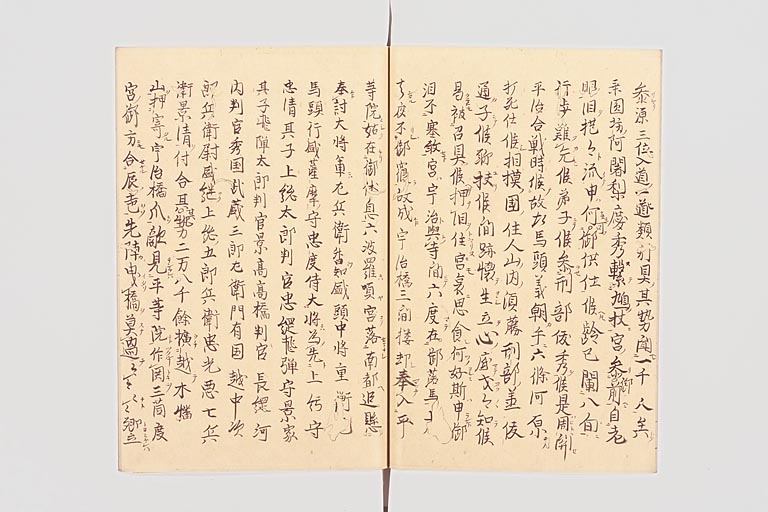 参源三位入道一類引具其勢闔一千人
采園坊阿闍梨慶秀繋鳩杖宮参前自老
眼泪挹々流申何御供仕候齢已闌八旬
行歩難允候弟子候参刑部俊秀候是
平治合戦時候故左馬頭義朝手六條河原
打死仕候相摸国住人山内須藤刑部丞俊
通子候聊扶候間跡懐生立心底知候
是被召具候押泪住宮哀思食何好斯申御
泪不塞敢宮宇治與寺間六度在御落馬
去夜不御寢故成宇治橋三間楼却奉入平
等院姑在御休息六波羅頃宮落南都追懸
奉討大将軍左兵衛督知盛頭中将重衡
馬頭行盛薩摩守忠度侍大将為先上総守
忠清其子上総太郎判官忠綱飛弾守景家
其子飛弾太郎判官景高高橋判官長綱河
内判官秀国武蔵三郎左衛門有国越中次
郎兵衛尉盛継上総五郎兵衛忠光悪七兵
衛景清付合其勢二万八千餘横越木幡
山押寄宇治橋爪敵見平等院作閧三箇度
宮御方合辰走先陣申橋莫過